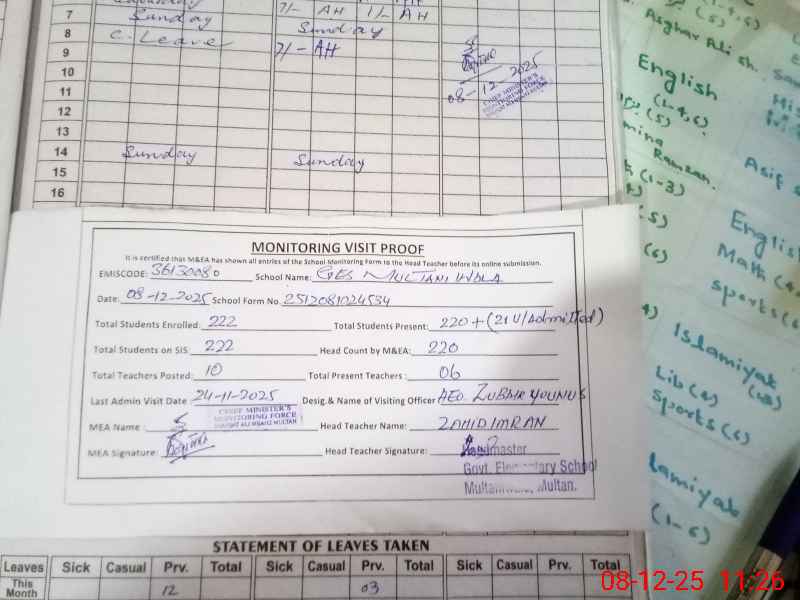 7 Sunday 7/- AH 1/- AH
8 C. Leave Sunday
9 7/- AH
10
11
12
13
14 Sunday Sunday
15
16
08-12-2025
CHIEF MINISTER'S
MONITORING FORCE
(5)
Asghar Ali Sh.
English
(1-4,6)
(5)
Ramzan.
(1-3)
(6)
Asif
English
Math
Sports
Islamiyat
Lib (6)
sports (6)
(1-6)
MONITORING VISIT PROOF
It is certified that M&EA has shown all entries of the School Monitoring Form to the Head Teacher before its online submission.
EMISCODE: 36130080 School Name: GES MULTANI WALA
Date: 08-12-2025 School Form No. 2512081024534
Total Students Enrolled: 222 Total Students Present: 220 + (21 U/Admitted)
Total Students on SIS: 222 Head Count by M&EA: 220
Total Teachers Posted: 10 Total Present Teachers: 06
Last Admin Visit Date: 24-11-2025 Desig.& Name of Visiting Officer AEO. ZUBAIR YOUNUS
CHIEF MINISTER'S
MONITORING FORCE
MEA Name: Head Teacher Name: ZAHID IMRAN
MEA Signature: Head Teacher Signature:
Headmaster
Govt. Elementary School
Multaniwala, Multan.
STATEMENT OF LEAVES TAKEN
Leaves Sick Casual Prv. Total Sick Casual Prv. Total Sick Casual Prv. Total
This Month 12 03
08-12-25 11:26